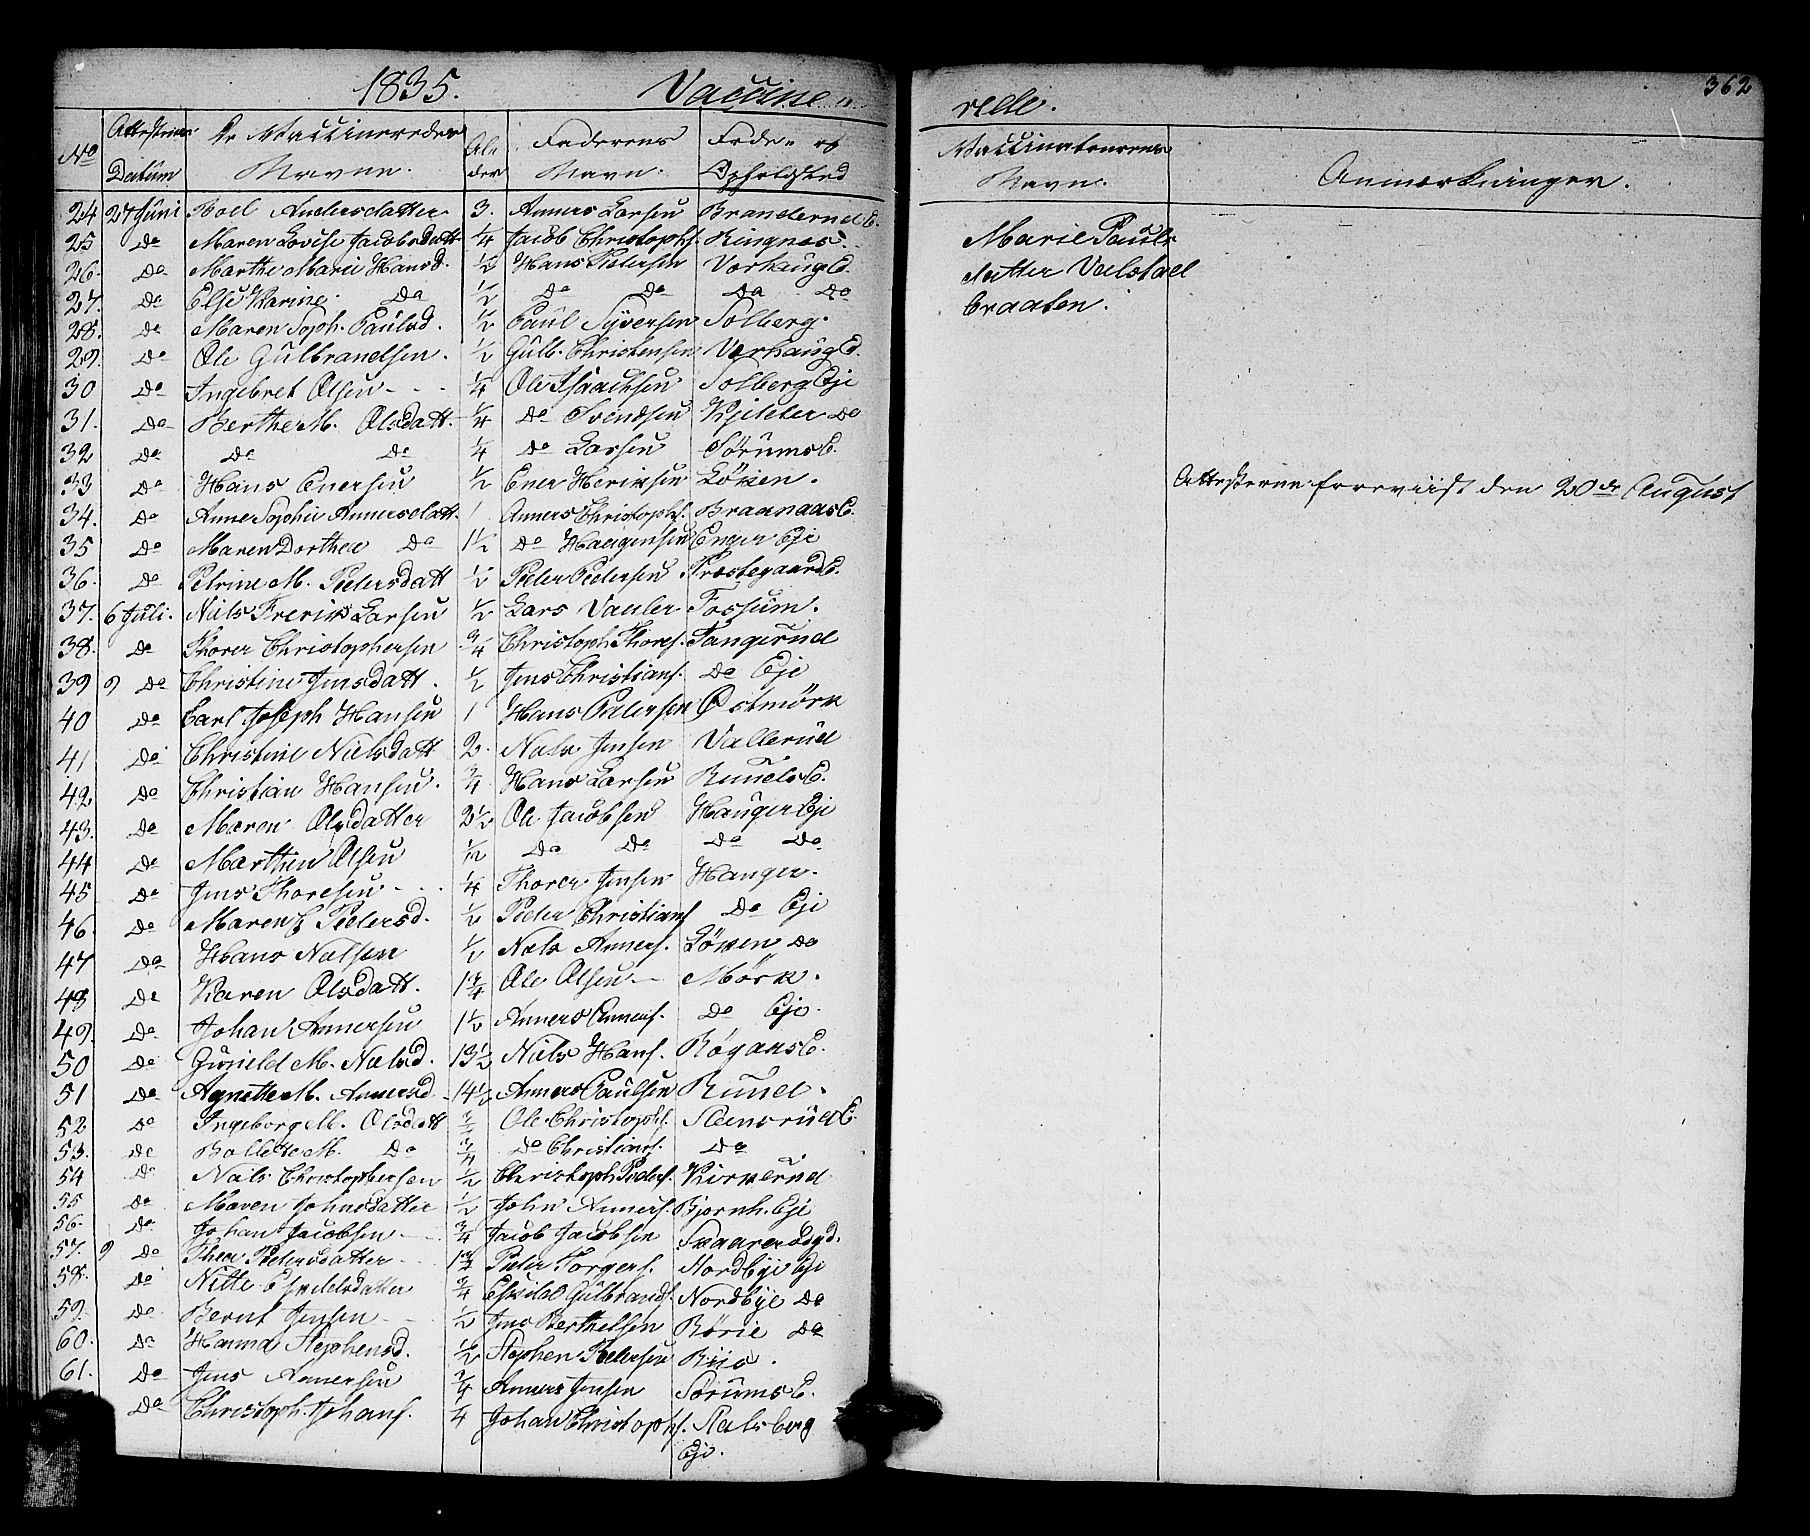 1835. Vaccine-
No Attesternes Datum De Vaccineredes Navne. Alder Faderens Navn. Føde- og Opholdsted
24 27 Juni Boel Andersdatter 3. Anners Larsen Branderud E.
25 do Maren Lovise Jacobsdatt 1/4 Jacob Christophs. Ringnes.
26. do Marthe Marie Hansd. 1/2 Hans Pedersen Vorhaug E.
27. do Else Karine do 1/2 do do do do
28. do Maren Soph. Paulsd. 1/2 Paul Syversen Solberg.
29. do Ole Gulbrandsen. 1/2 Gulb. Christensen Vorhaug E.
30 do Ingebret Olsen 1/4 Ole Isaachsen Solberg Eje
31. do Berthe M. Olsdatt. 1/4 do Svendsen do
32 do do do 1/4 do Larsen Sørums E.
33 do Hans Enersen 1/2 Ener Henriksen Løken.
34. do Anne Sophie Annersdatt. 1 Anners Christophs. Braanaas E.
35 do Maren Dorthea do 1 1/2 do Haagensen Enger Eje
36. do Petrine M. Pedersdatt 1/2 Peder Pedersen Præstegaard E.
37. 6 Juli. Niels Frerik Larsen 1/2 Lars Vauler Fossum.
38. do Thorer Christophersen 3/4 Christoph Thores. Tangerud
39 9 do Christine Jensdatt. 1/2 Jens Christians. do Eje
40 do Carl Joseph Hansen 1 Hans Pedersen Østmørk
41 do Christine Nielsdatt 2. Niels Jensen Vallerud
42 do Christian Hansen. 3/4 Hans Larsen Ruuds E.
43. do Maren Olsdatter 2 1/2 Ole Jacobsen Hauger Eje
44 do Marthin Olsen 1/2 do do do do
45 do Jens Thoresen 1/4 Thorer Jensen Hauger.
46. do Maren Pedersd. 1/2 Peder Christians do Eje
47 do Hans Nielsen 1/2 Niels Anners. Løken do
48 do Karen Olsdatt. 1 3/4 Ole Olsen Mørk.
49. do Johan Annersen 1 1/2 Anners Anners. do Eje.
50 do Gunild M. Nielsd. 13 1/2 Niels Hans. Røgaas E.
51 do Agnethe M. Annersd. 14 1/2 Anners Paulsen Ruud.
52 do Ingeborg M. Olsdatt Ole Christophs. Steensrud E.
53. do Bolette M. do 3/4 do Christians. do
54 do Niels Christophersen 1/2 Christoph Peders. Kirkerud
55 do Maren Johnsdatter 1/2 John Anners. Bjørnh. Eje
56. do Johan Jacobsen 3/4 Jacob Jacobsen
57. 9 do Thea Pedersdatter Peder Torgers. Nordbye Eje
58. do Nette Eskildsdatter 3/4 Eskild Gulbrands. Nordbye do
59. do Bernt Jensen 1/2 Jens Berthelsen do
60. do Hanna Stephensd. 1/2 Stephen Pedersen Riis.
61. do Jens Annersen 3/4 Anners Jensen Sørums E.
do Christoph. Johans. 1/4 Johan Christophs. Stalsberg
Eje.
362
rede.
Vaccinateurens Navn. Anmærkninger.
Marie Pauls
datter Veelstad
braaten.
Attesterne foreviist den 20de August